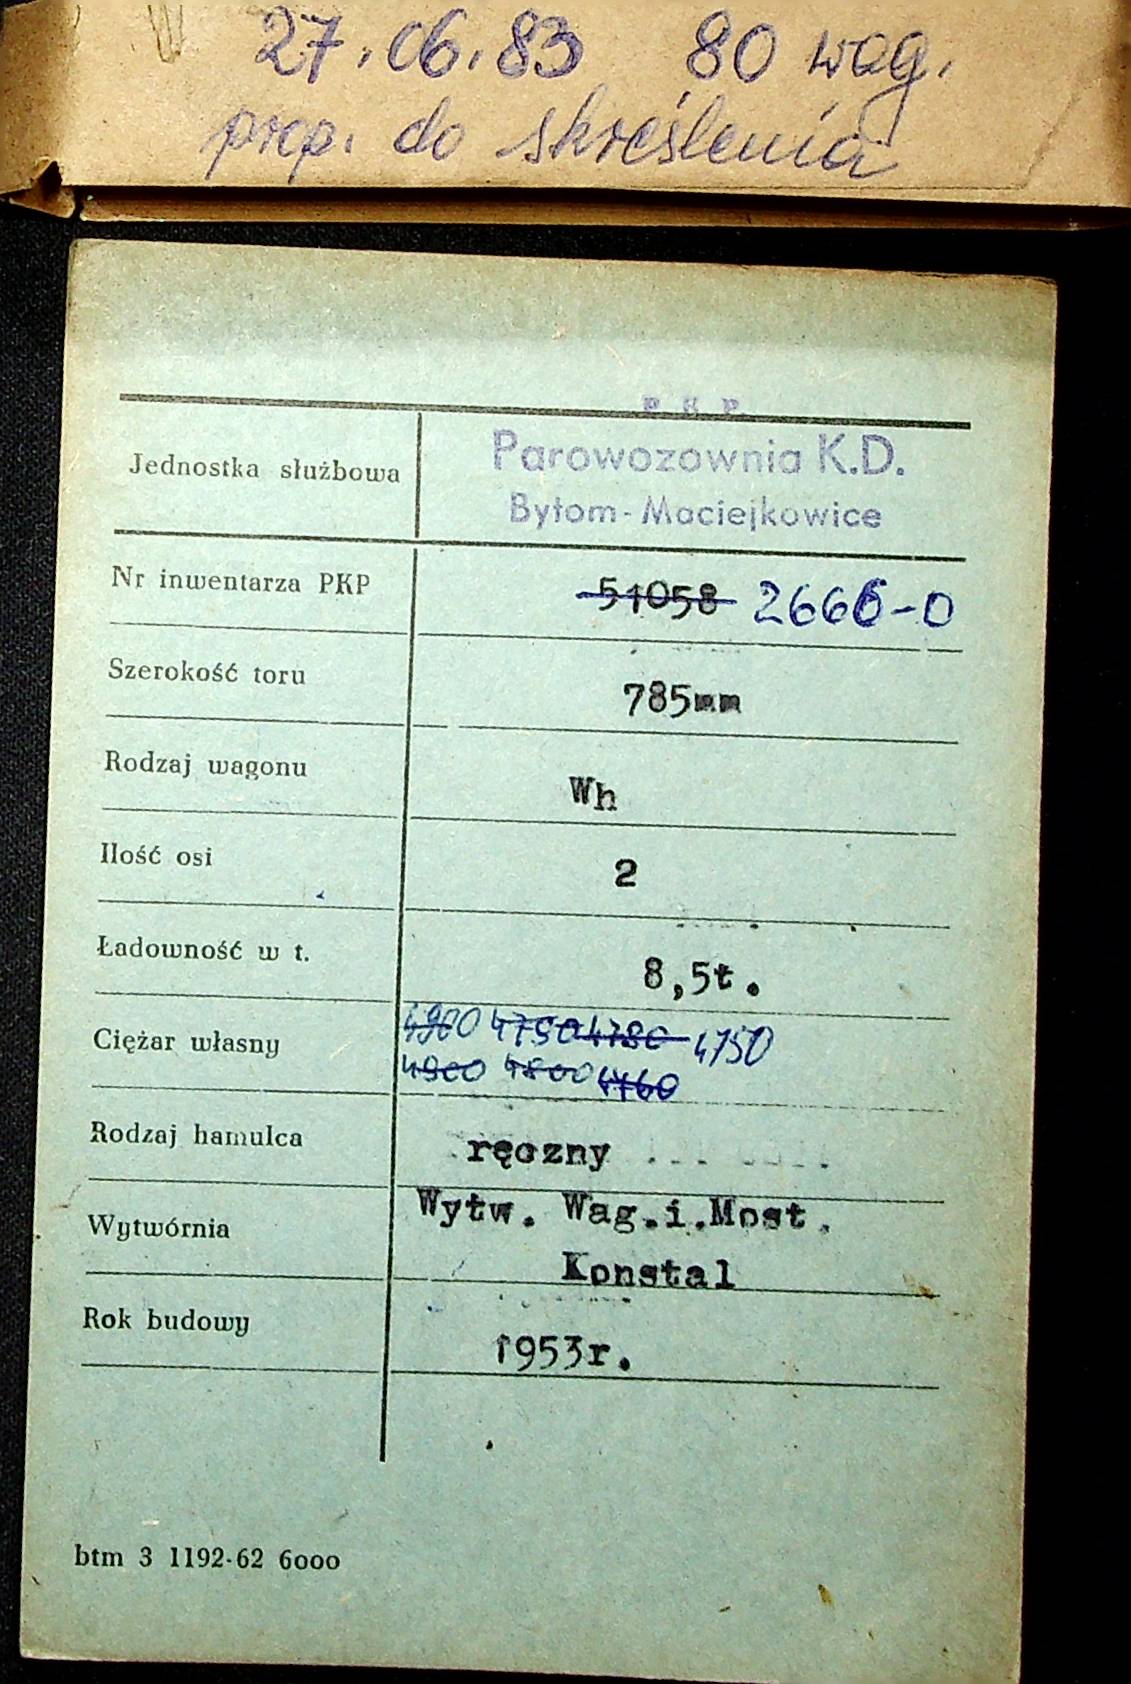 27.06.83 80 wag.
prop. do skreślenia
P K P
Parowozownia K.D.
Jednostka służbowa
Bytom-Maciejkowice
Nr inwentarza PKP 51058 2666-0
Szerokość toru 785mm
Rodzaj wagonu Wh
Ilość osi 2
Ładowność w t. 8,5t.
4900 4750 4780 4750
Ciężar własny
4900 4800 4760
Rodzaj hamulca ręczny
Wytw. Wag.i.Most.
Wytwórnia
Konstal
Rok budowy 1953r.
btm 3 1192-62 6000